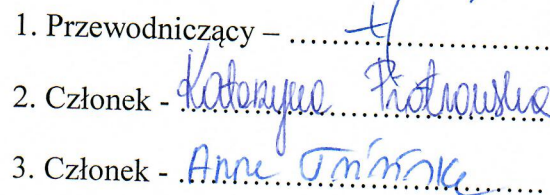 1. Przewodniczący – ....................
2. Członek - Katarzyna Piotrowska
3. Członek - Anna